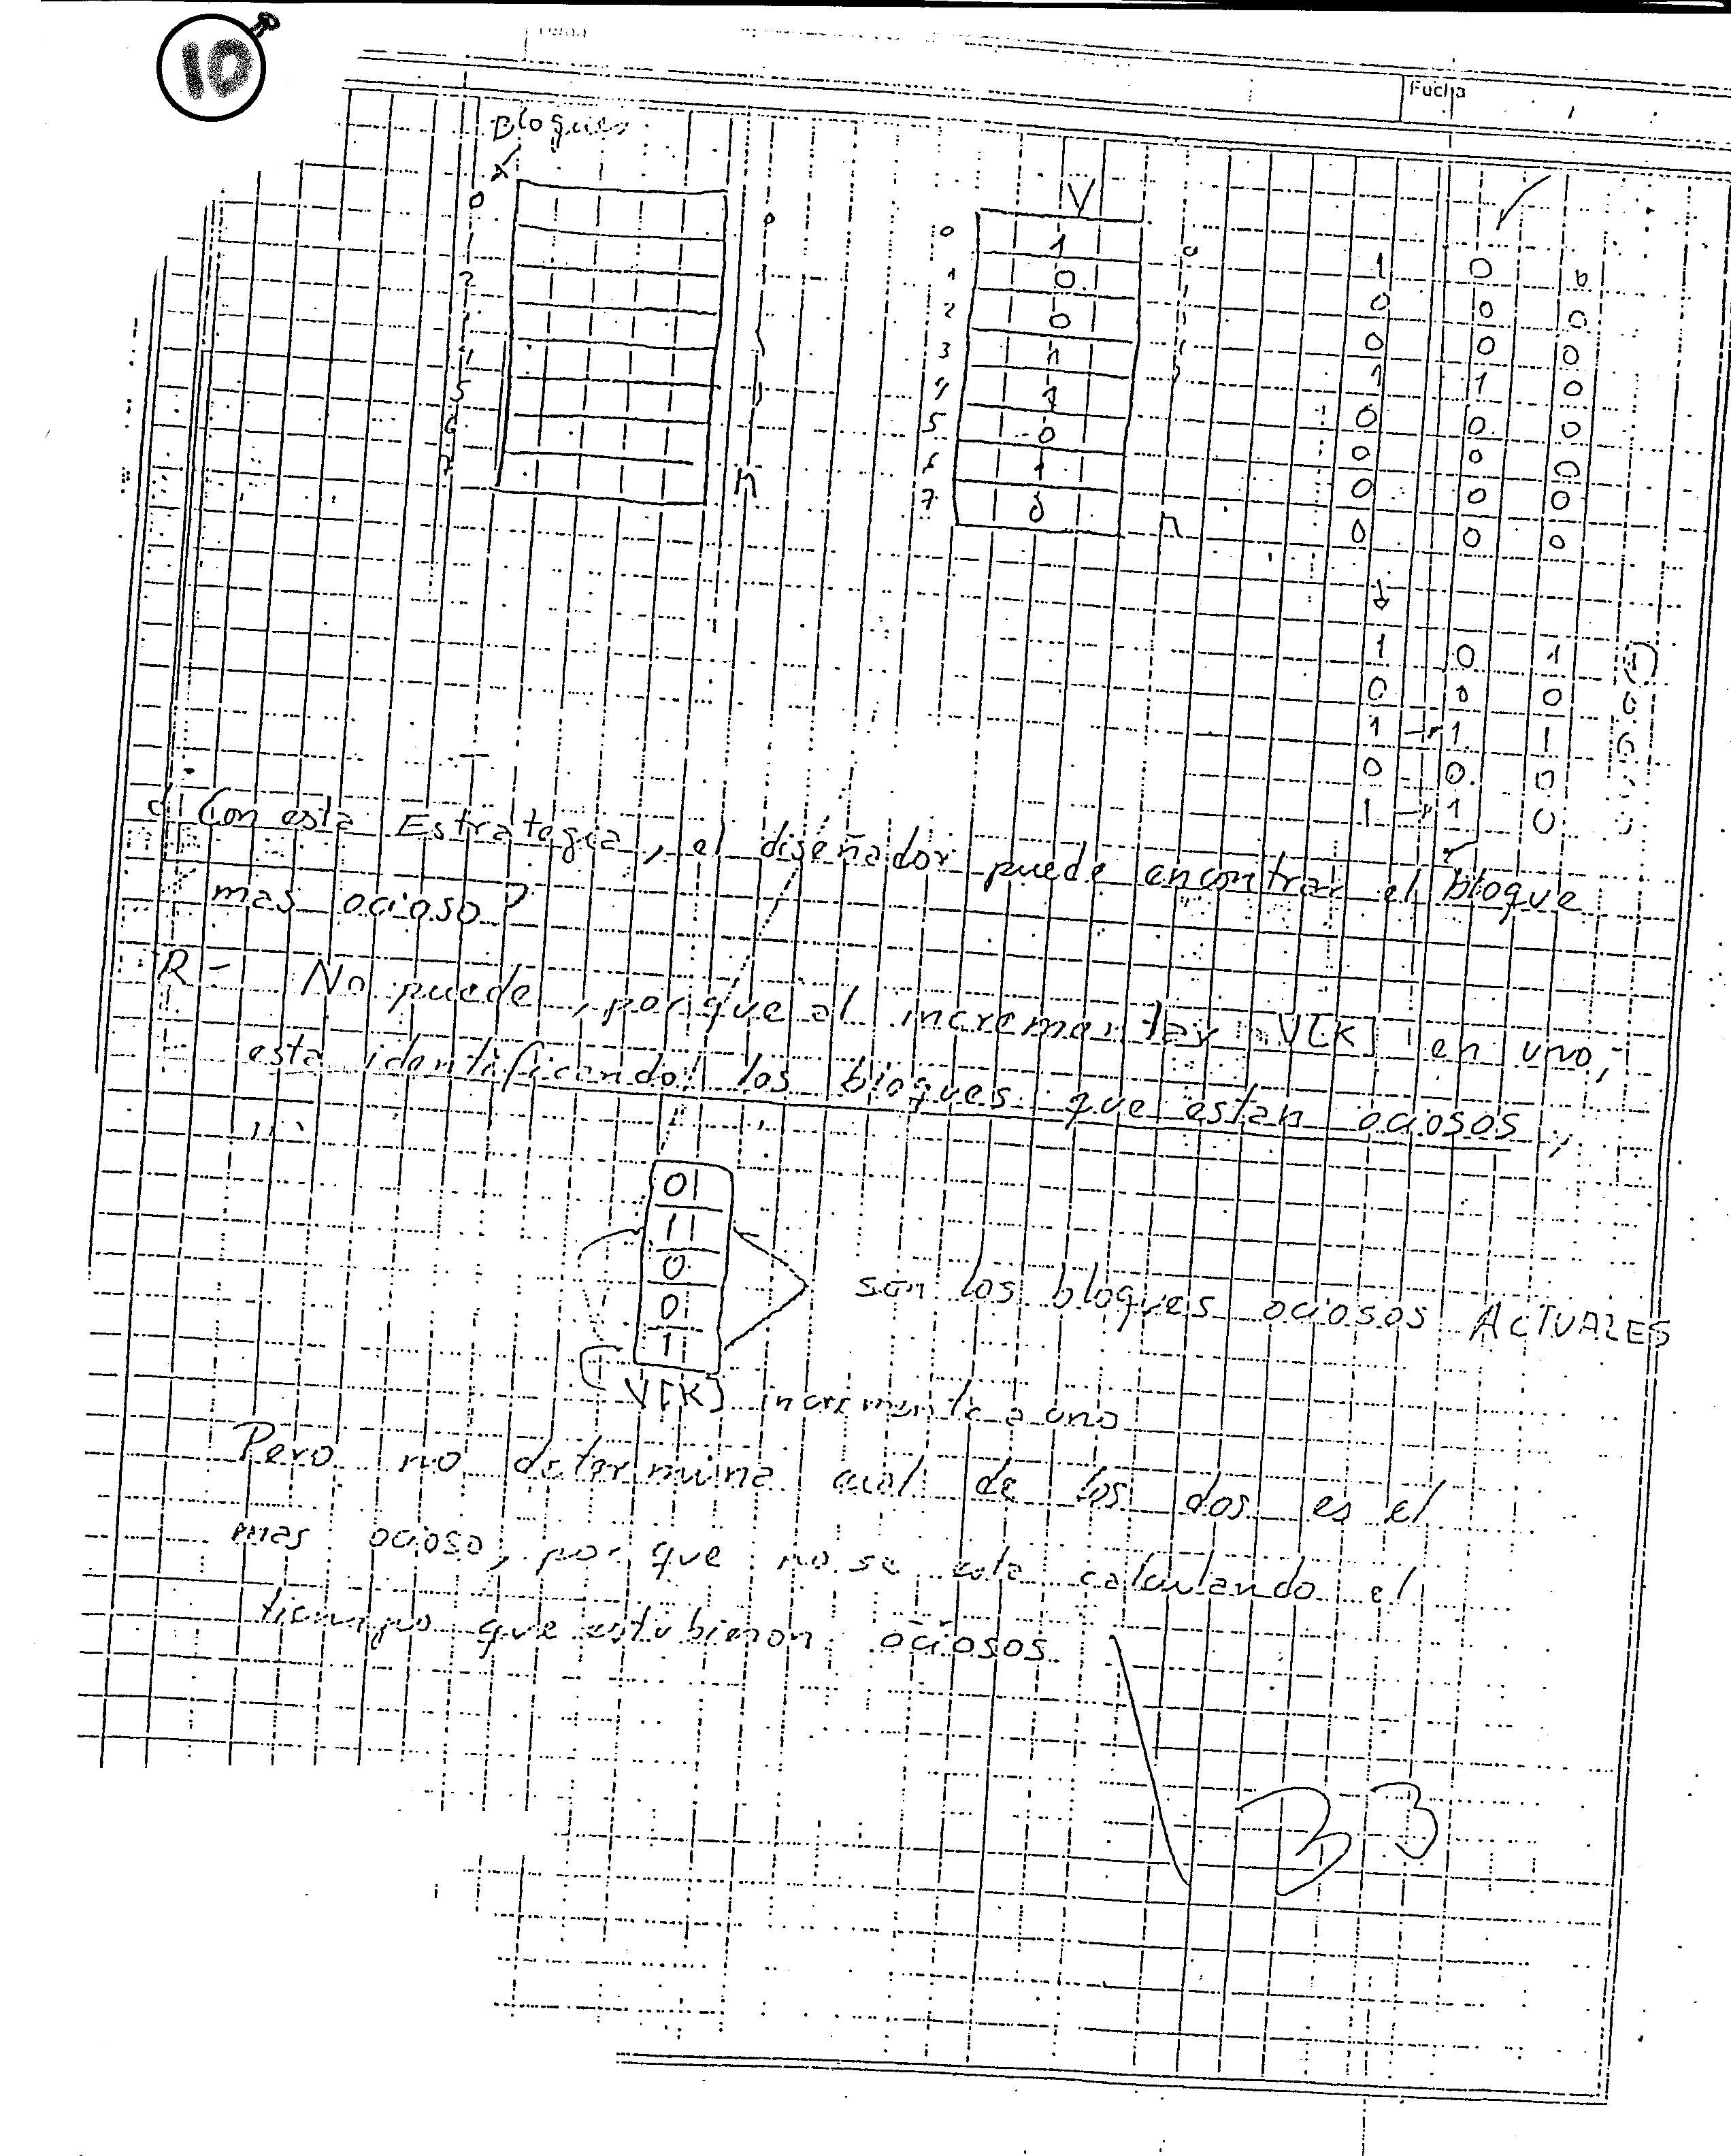 10
Fecha
Bloques
X
V
0 0 0 1 0 1 0 0
1 1 0 0 0 0
2 2 0 0 0 0
3 1 1 0
4 1 0 0 0
5 5 0 0 0 0
6 6 1 0 0 0
7 n 7 0 n 0 0 0
1 0 1
0 0 0
1 → 1 1
0 0 0
1 → 1 0
¿Con esta Estrategia, el diseñador puede encontrar el bloque
mas ocioso?
R- No puede, porque al incrementar V[K] en uno,
esta identificando los bloques que estan ociosos,
0
1
0
0
1
son los bloques ociosos ACTUALES
V[K] incrementa a uno
Pero no determina cual de los dos es el
mas ocioso, por que no se esta calculando el
tiempo que estubieron ociosos
33